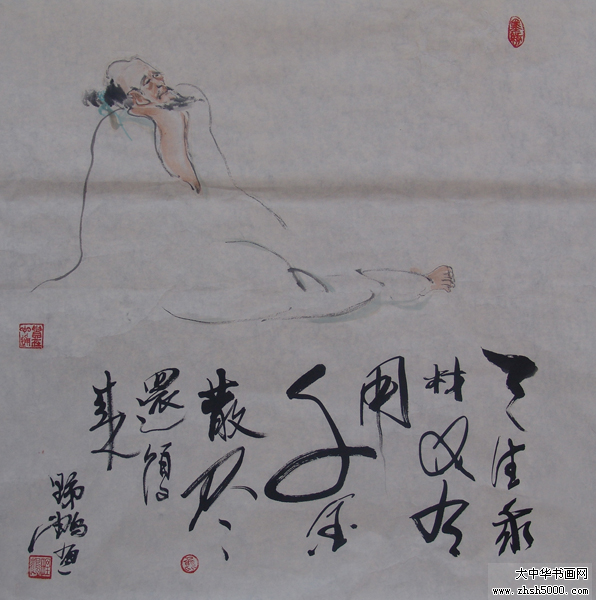 天生我
材必有
用
千金
散尽
還復
来
大中华书画网
www.zhsh5000.com